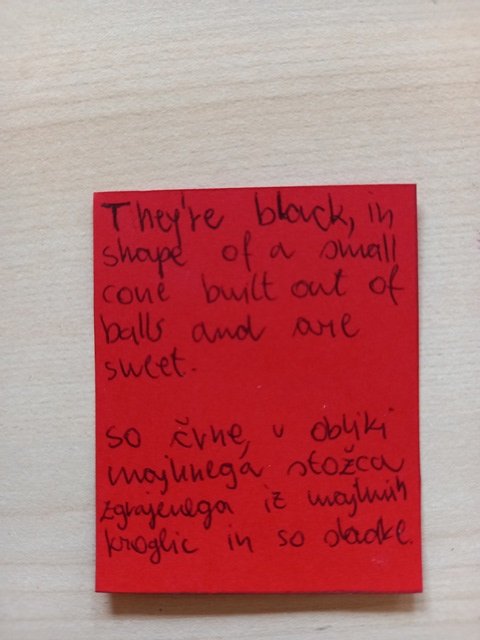 They're black, in
shape of a small
cone built out of
balls and are
sweet.
so črne, v obliki
majhnega stožca
zgrajenega iz majhnih
kroglic in so sladke.